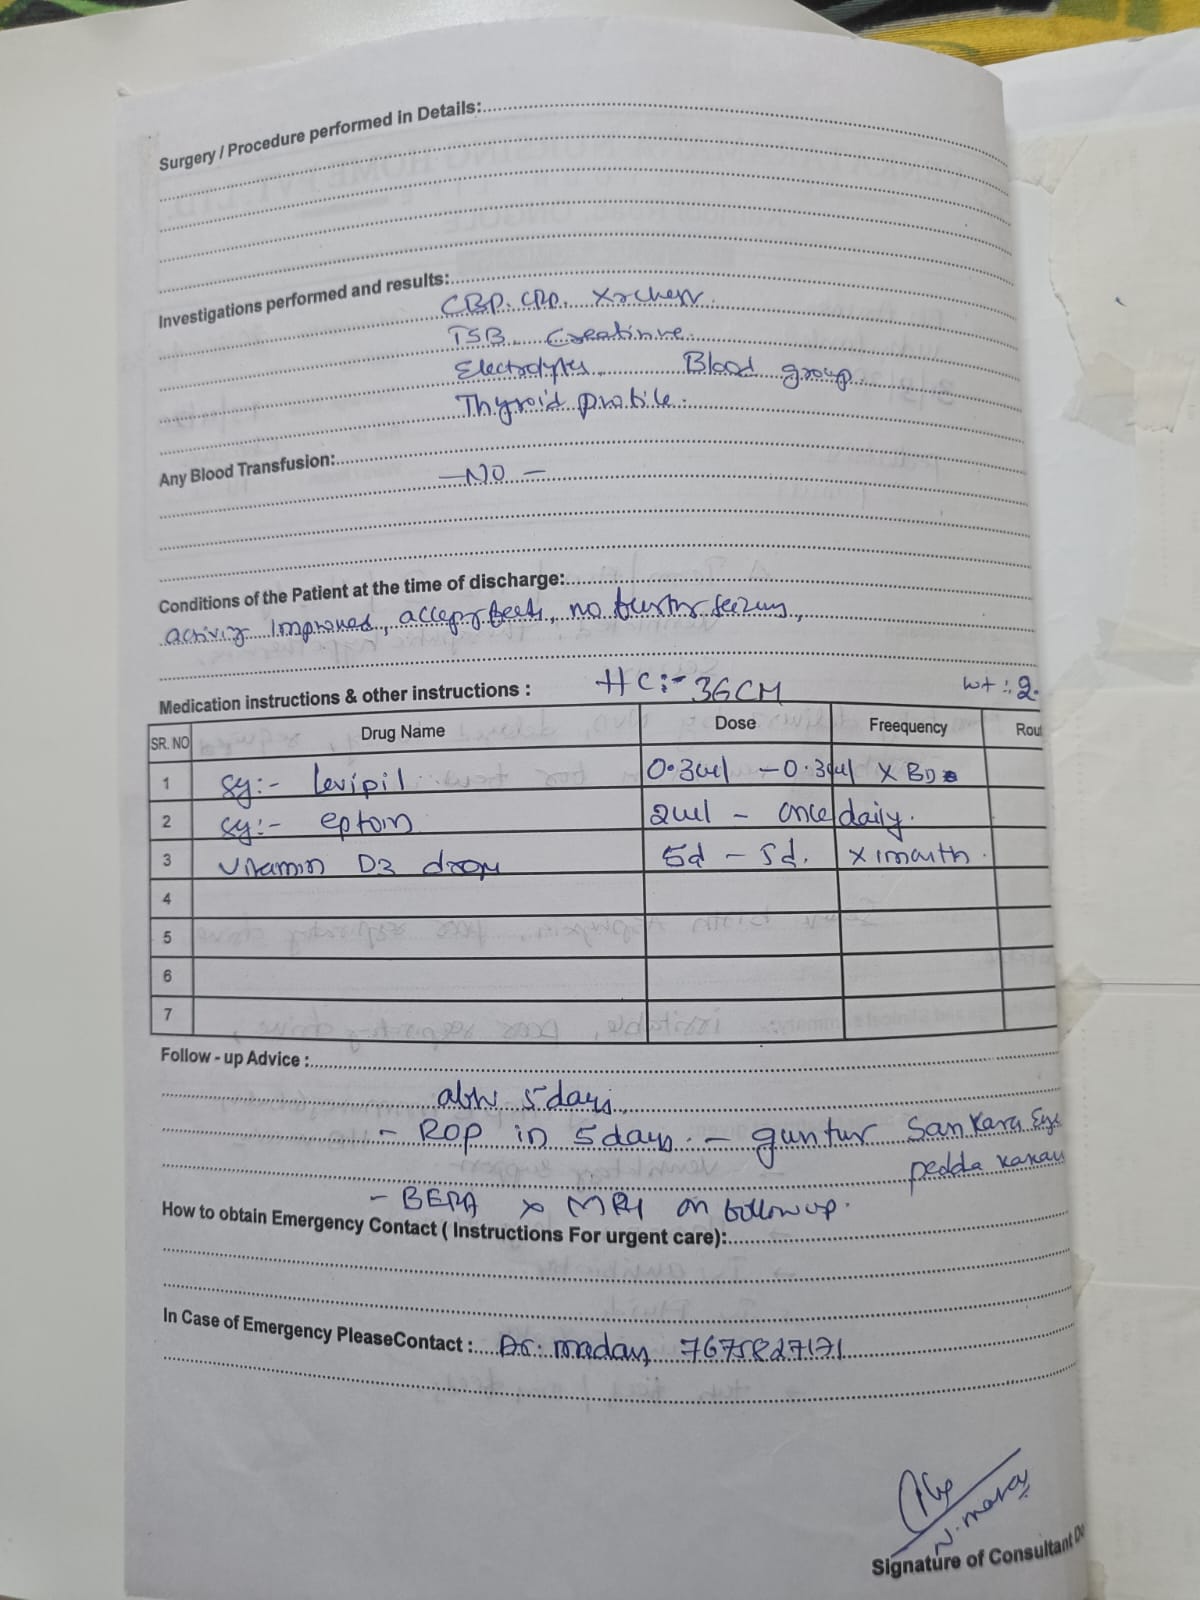 Surgery / Procedure performed in Details:
Investigations performed and results:
CBP. CRP. X-r chest.
TSB. Creatinine.
Electrolytes. Blood group.
Thyroid profile.
Any Blood Transfusion:
- NO -
Conditions of the Patient at the time of discharge:
activity Improved, accept feeds, no further seizures,
Medication instructions & other instructions : HC:- 36CM wt: 2.
SR. NO Drug Name Dose Freequency Rou
1 sy:- levipil 0.3ml - 0.3ml x BD
2 sy:- eptoin 2ml - once daily.
3 Vitamin D3 drops 5d - 5d. x 1 month.
4
5
6
7
Follow - up Advice :
after 5 days.
- ROP in 5 days. - guntur Sankara Eye
pedda kakan
- BERA x MRI on follow up.
How to obtain Emergency Contact ( Instructions For urgent care):
In Case of Emergency PleaseContact : Dr. 7675827171
N.
Signature of Consultant